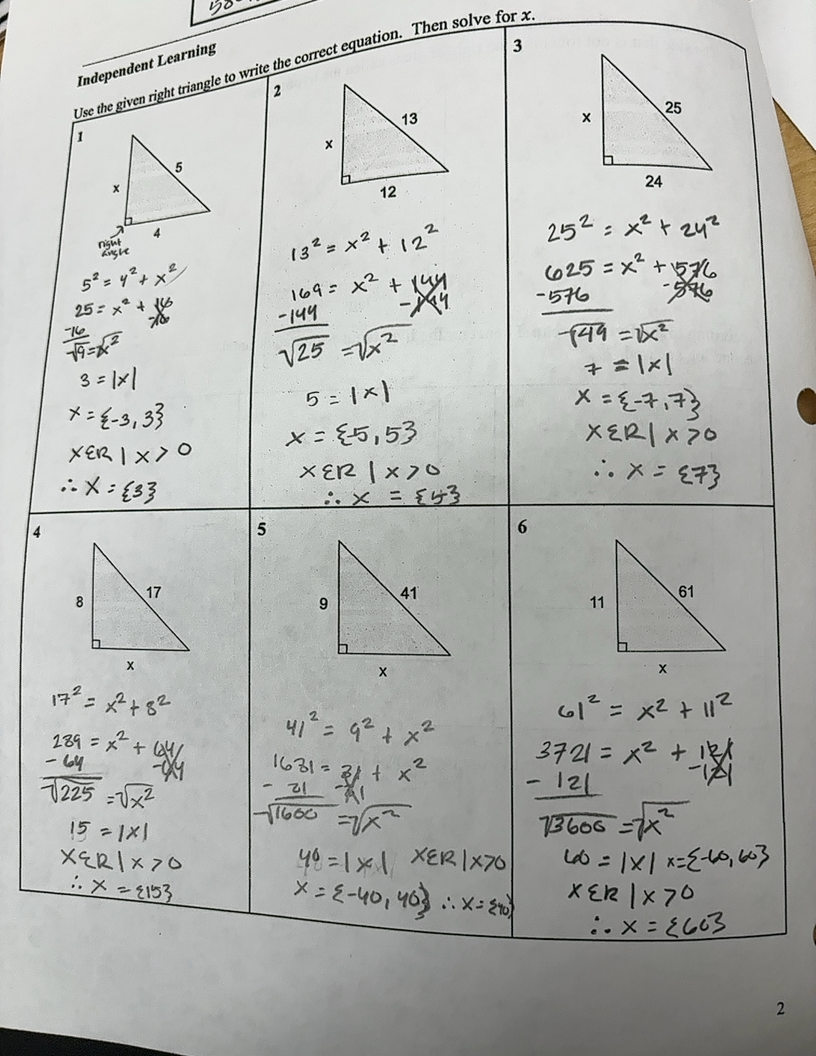 58
Independent Learning
Use the given right triangle to write the correct equation. Then solve for x.
1
x
5
4
right
angle
5² = 4² + x²
25 = x² + 16
-16 -16
√9 = √x²
3 = |x|
x = {-3, 3}
xεR | x > 0
∴ x = {3}
2
x
13
12
13² = x² + 12²
169 = x² + 144
-144 -144
√25 = √x²
5 = |x|
x = {-5, 5}
xεR | x > 0
∴ x = {5}
3
x
25
24
25² = x² + 24²
625 = x² + 576
-576 -576
√49 = √x²
7 = |x|
x = {-7, 7}
xεR | x > 0
∴ x = {7}
4
8
17
x
17² = x² + 8²
289 = x² + 64
-64 -64
√225 = √x²
15 = |x|
xεR | x > 0
∴ x = {15}
5
9
41
x
41² = 9² + x²
1681 = 81 + x²
-81 -81
√1600 = √x²
40 = |x| xεR | x > 0
x = {-40, 40} ∴ x = {40}
6
11
61
x
61² = x² + 11²
3721 = x² + 121
-121 -121
√3600 = √x²
60 = |x| x = {-60, 60}
xεR | x > 0
∴ x = {60}
2